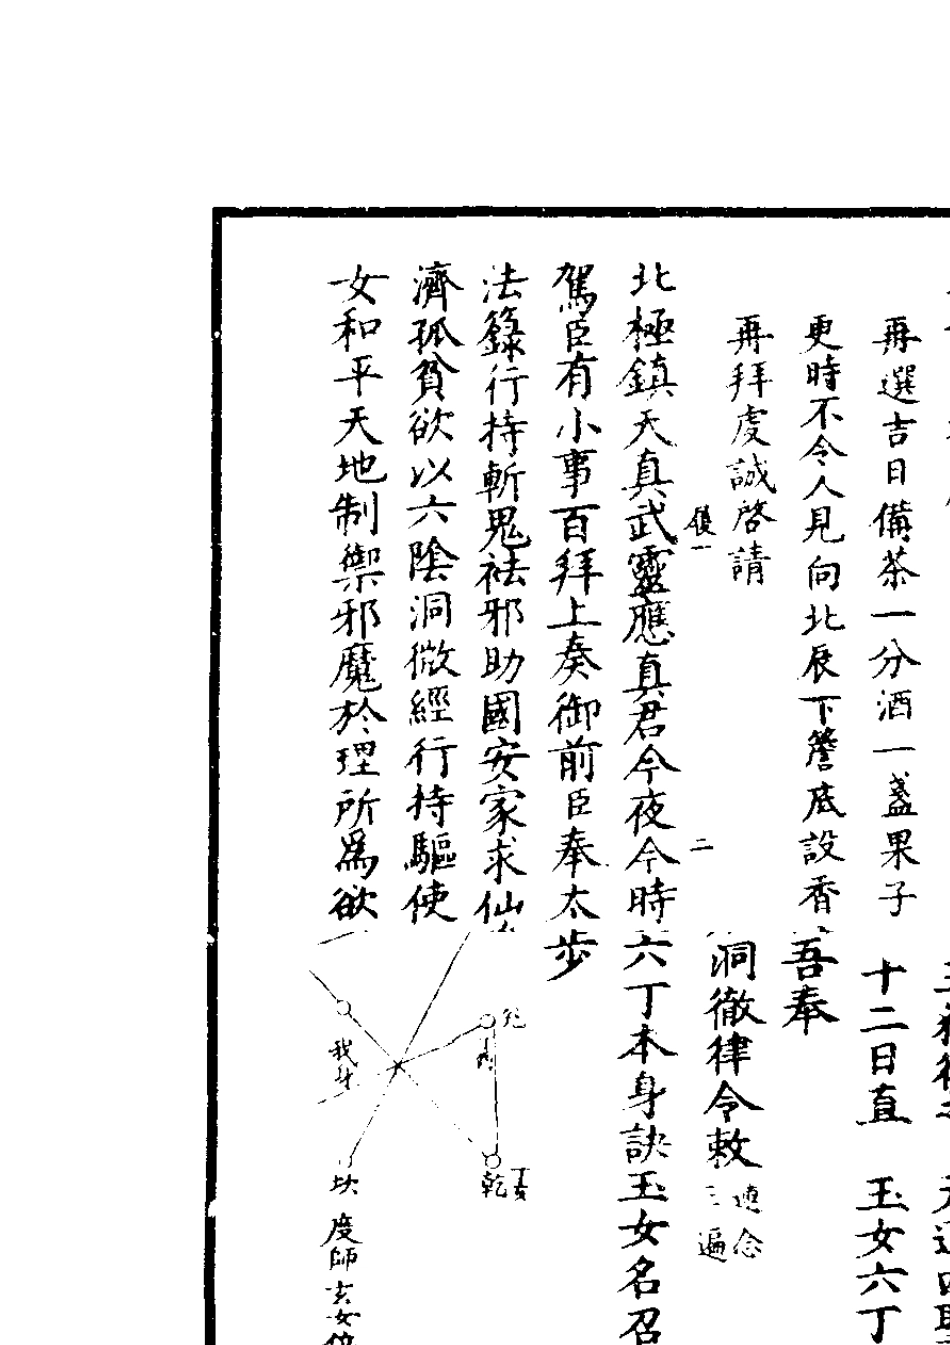 再選吉日備茶一分酒一盞果子
更時不令人見向北辰下簷底設香
再拜虔誠啓請
北極鎮天真武靈應真君今夜今時
駕臣有小事百拜上奏御前臣奉太
法籙行持斬鬼祛邪助國安家求仙
濟孤貧欲以六陰洞微經行持驅使
女和平天地制禦邪魔於理所爲欲
二
十二日直 玉女六丁
吾奉
洞徹律令敕 連念三遍
六丁本身訣玉女名召
步
我身
乾
坎 度師玄女